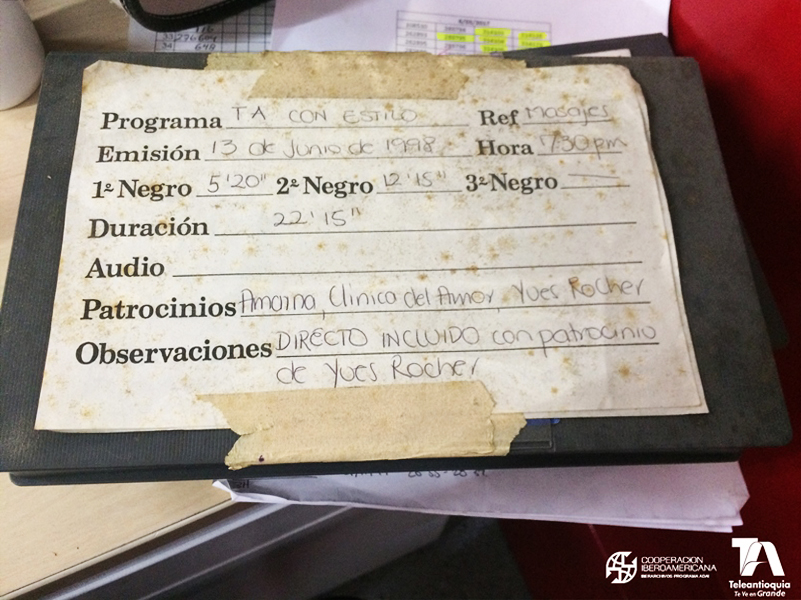 33 276694
34 648
6/05/2017
Programa TA CON ESTILO Ref Masajes
Emisión 13 de Junio de 1998 Hora 7:30 pm
1º Negro 5'20" 2º Negro 12'15" 3º Negro
Duración 22'15"
Audio
Patrocinios Amorna, Clinica del Amor, Yves Rocher
Observaciones DIRECTO INCLUIDO con patrocinio
de Yves Rocher
COOPERACION
IBEROAMERICANA
IBERARCHIVOS PROGRAMA ADAI
TA
Teleantioquia
Te Ve en Grande